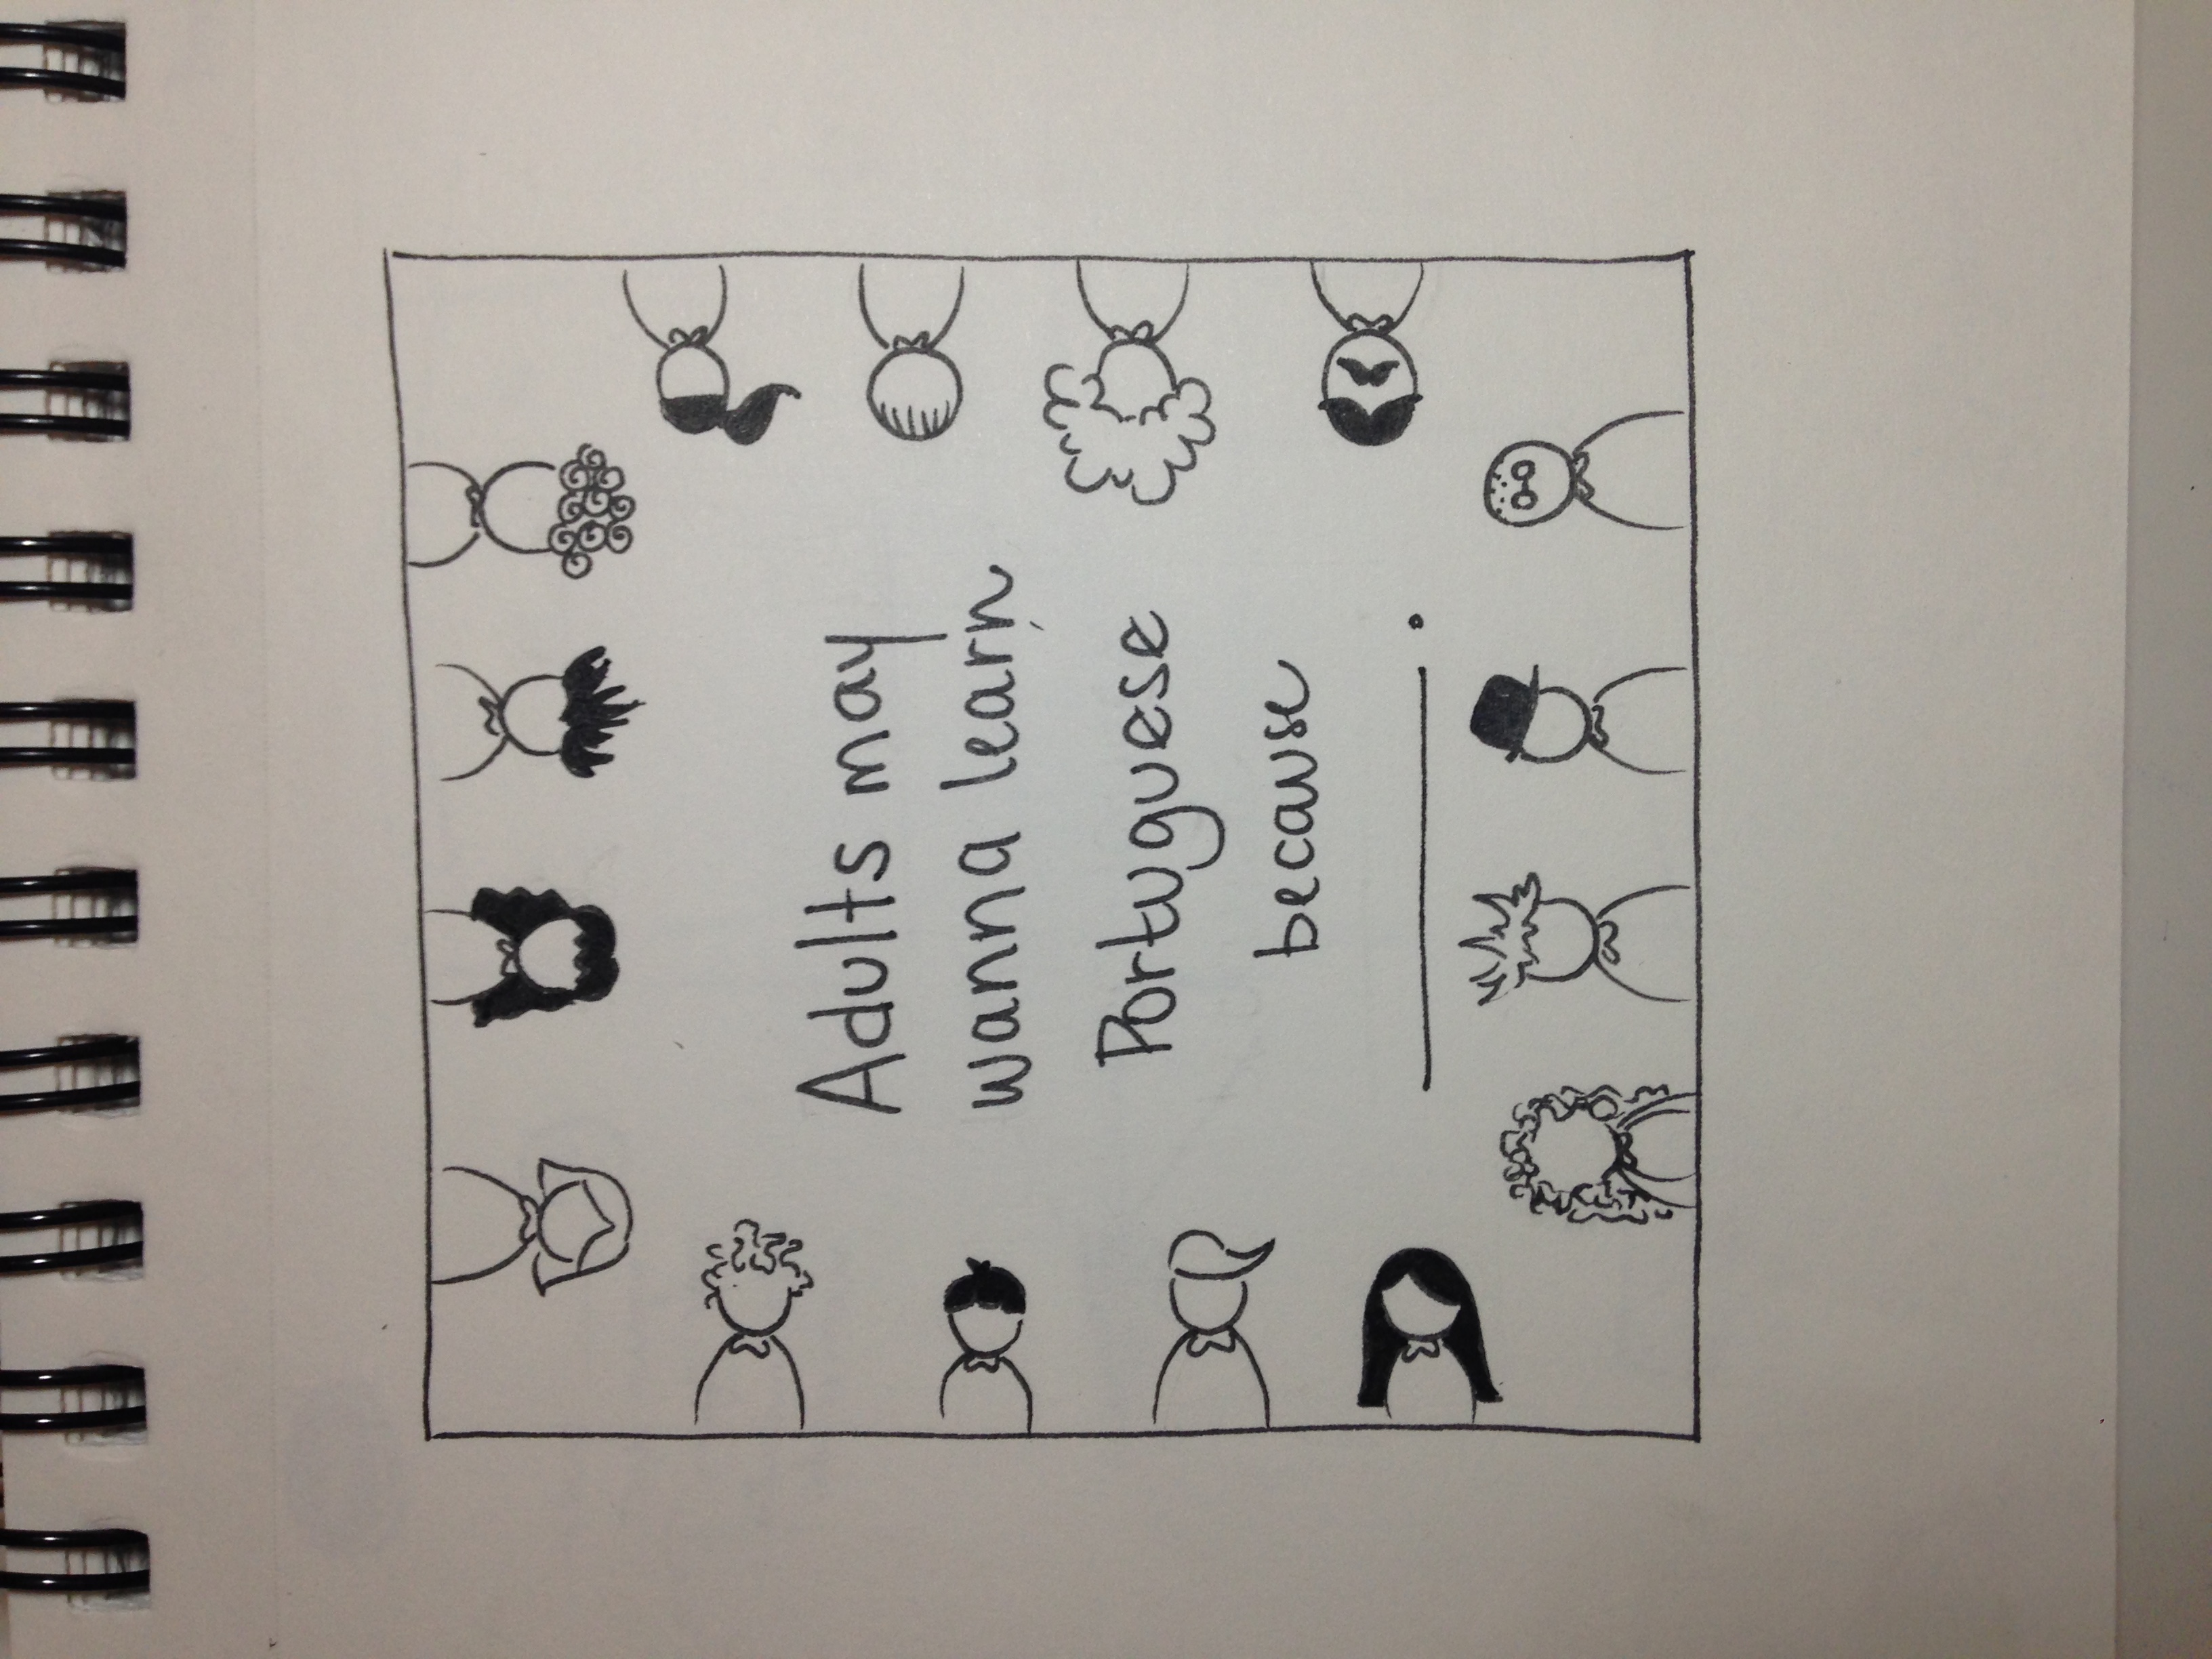 Adults may
wanna learn
Portuguese
because
__________.